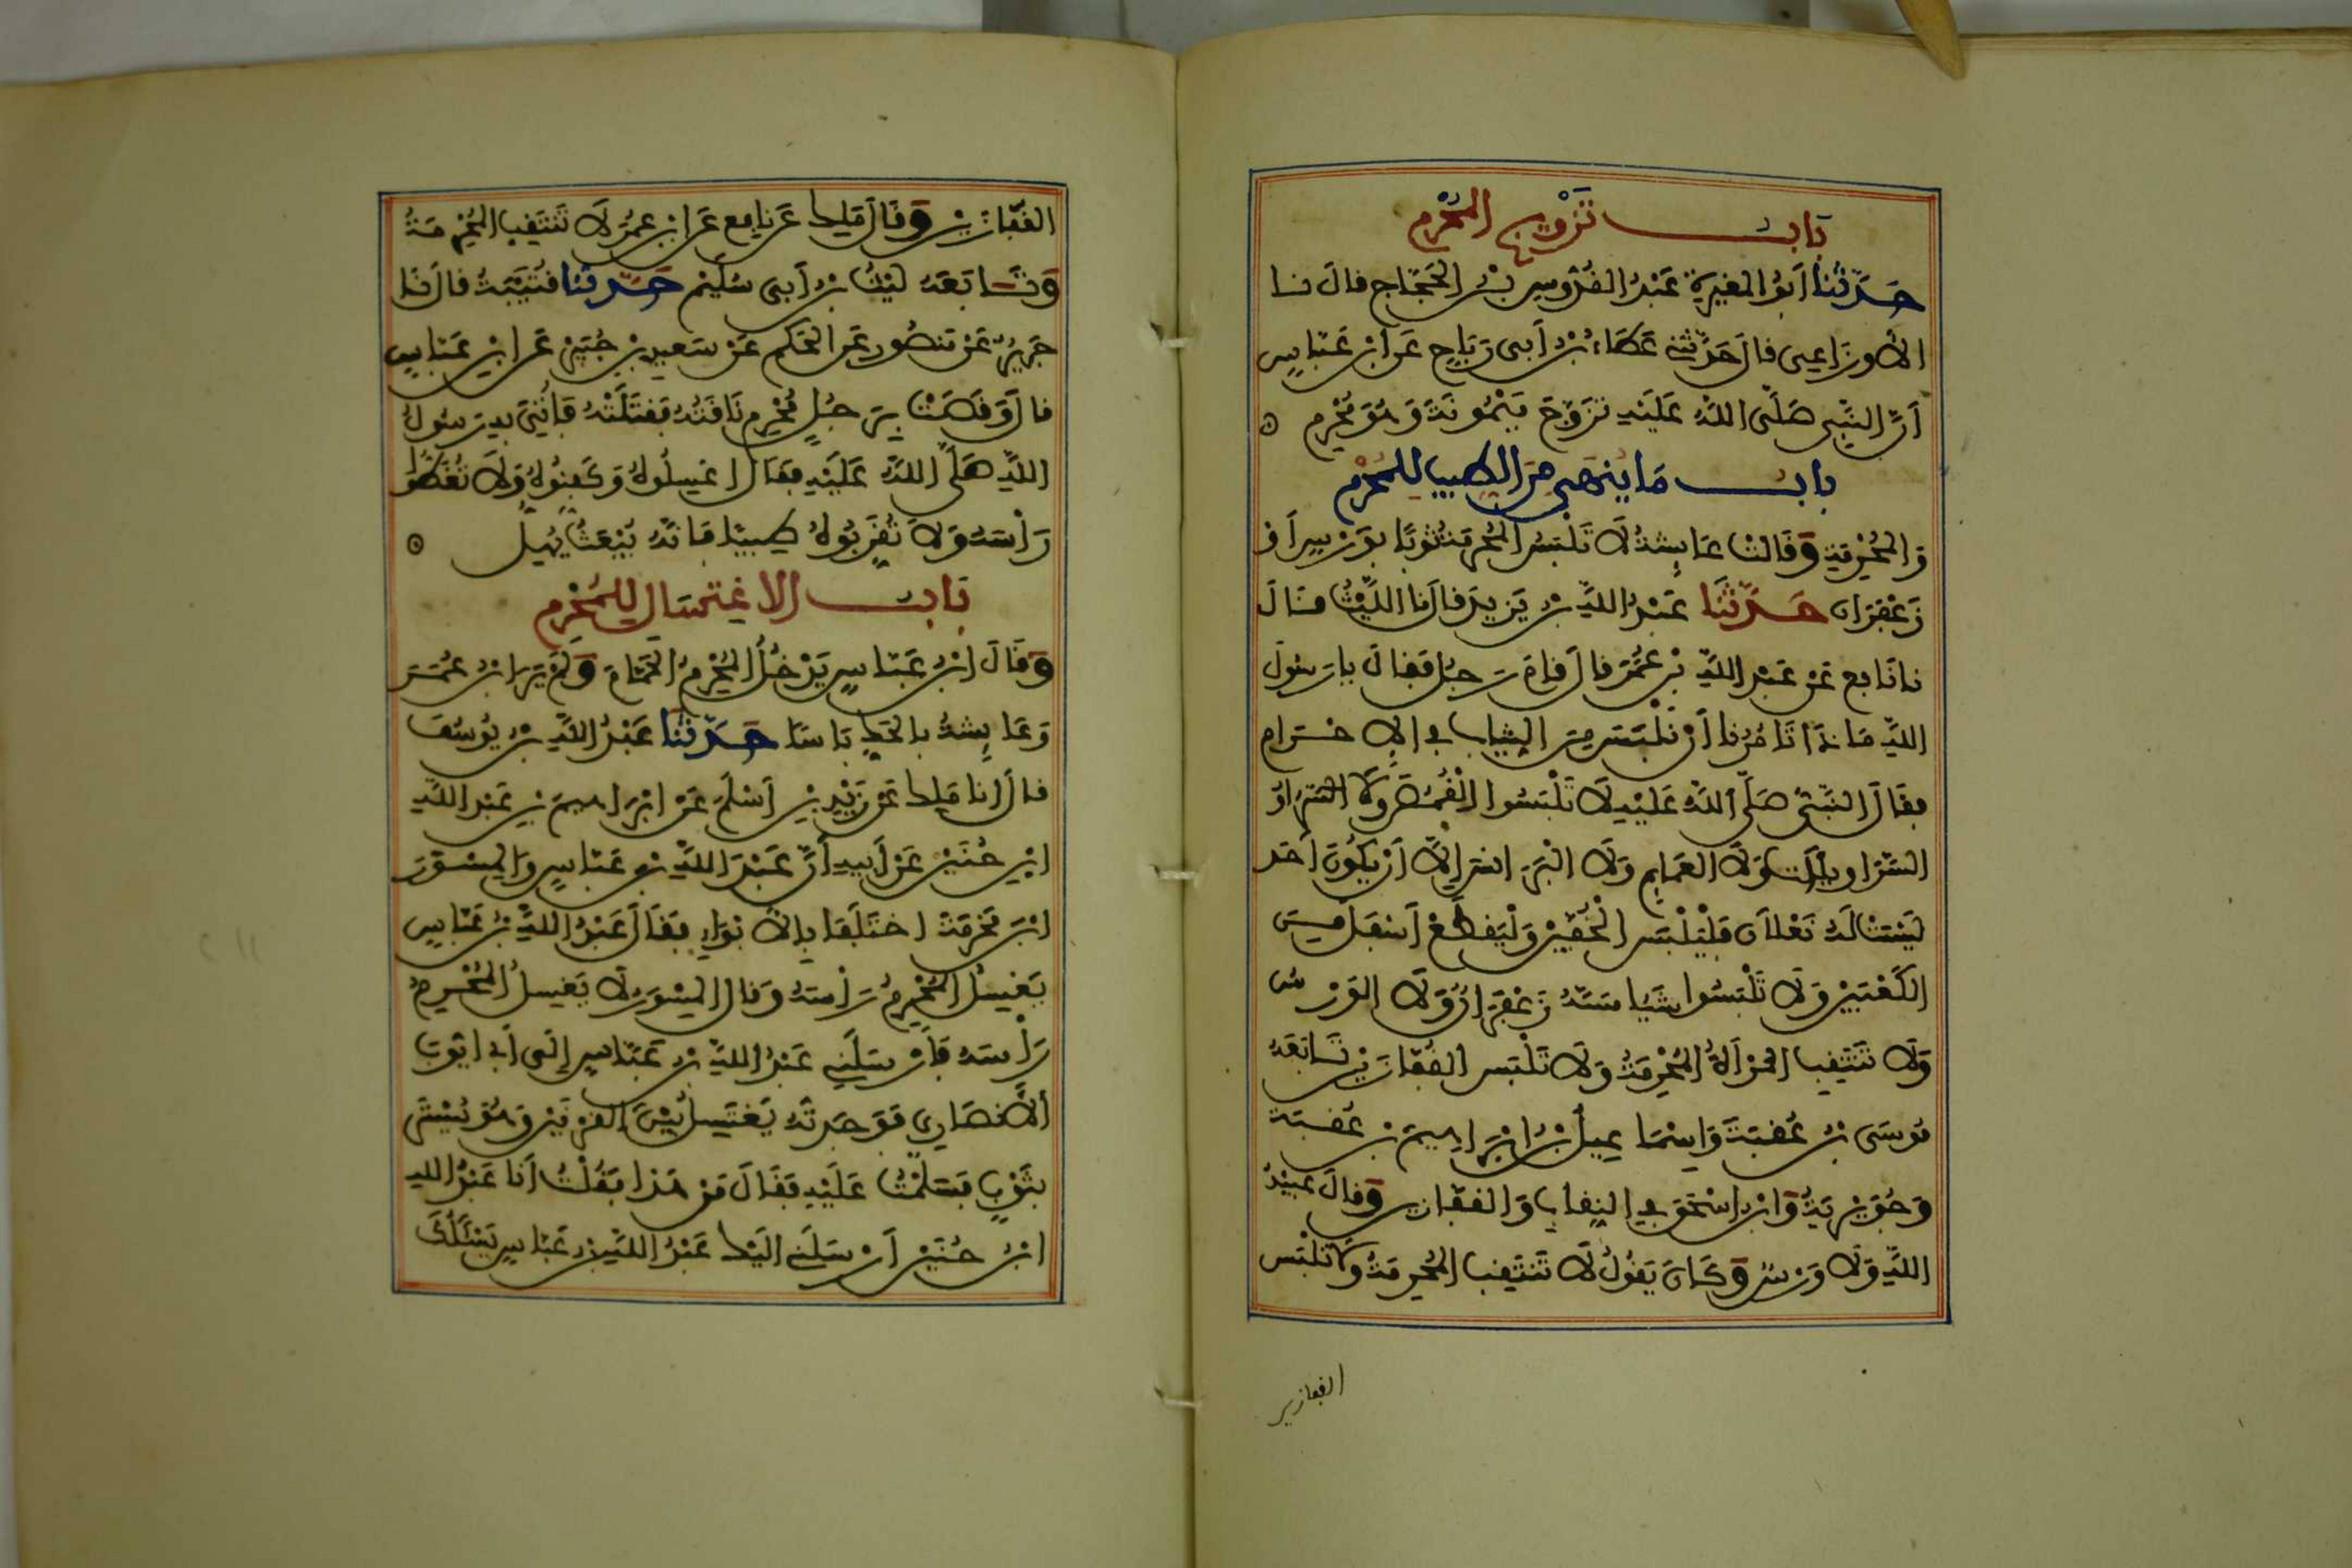 باب تزويج المُحْرِم
حَدَّثَنَا أَبُو المغيرةِ عَبْدُ القُدُّوسِ بْنُ الحَجَّاجِ قال نا
الأَوزَاعِى قال حَدَّثَنِى عَطَاءُ بْنُ أَبِى رَبَاحٍ عَنِ ابْنِ عَبَّاسٍ
أَنَّ النَّبِىَّ صَلَّى اللَّهُ عَلَيْهِ تَزَوَّجَ مَيْمُونَةَ وَهُوَ مُحْرِم
باب مَا يُنهَى مِنَ الطِّيبِ لِلْمُحْرِم
وَالمُحْرِمَةِ وَقَالَت عَائِشَةُ لَا تَلْبَسُ المُحْرِمَةُ ثَوْبًا بِوَرْسٍ أَوْ
زَعْفَرَان حَدَّثَنَا عَبْدُ اللَّهِ بْن يَزِيدَ قال نَا اللَّيْثُ قَالَ
نا نَافِع عَنْ عَبْدِ اللَّهِ بْنِ عُمَرَ قال قامَ رَجُل فقالَ يا رَسُولَ
اللَّهِ مَاذَا تَأمُرُنا أَنْ نَلْبَسَ مِنَ الثِّيَابِ فِى الإِحْرَامِ
فقَالَ النَّبِىُّ صَلَّى اللَّهُ عَلَيْهِ لَا تَلْبَسُوا الْقُمُصَ وَلَا السَّرَاوِ
السَّرَاوِيلَاتِ وَلَا العَمَائِمَ وَلَا البَرَانِسَ إِلَّا أَنْ يَكُونَ أَحَد
لَيْسَت لَهُ نَعْلَانِ فَلْيَلْبَسِ الْخُفَّيْنِ وَلْيَقْطَعْ أَسْفَلَ مِنَ
الكَعْبَيْنِ وَلَا تَلْبَسُوا شَيْا مَسَّهُ زَعْفَرَانٌ وَلَا الوَرْسُ
وَلَا تَنْتَقِبِ المَرْأَةُ المُحْرِمَةُ وَلَا تَلْبَسِ القُفَّازَيْنِ تَابَعَهُ
مُوسَى بْنُ عُقبَةَ وَإِسْمَاعِيلُ بْنُ إِبْرَاهِيمَ بْنِ عُقبَةَ
وَجُوَيْرِيَةُ وَابْنُ إِسْحَقَ فِى النِّقَابِ وَالقفّازين وَقالَ عُبَيْدُ
اللَّهِ وَلَا وَرْسٌ وَكَانَ يَقُولُ لَا تَنْتَقِبِ المُحْرِمَةُ وَلَا تَلْبَسِ
القفازين
القفَّازَيْنِ وَقَالَ مَالِك عَن نَافِعٍ عَنِ ابْنِ عُمَرَ لَا تَنْتَقِبِ المُحْرِمَةُ
وَتَابَعَهُ لَيْثُ بْنُ أَبِى سُلَيْمٍ حَدَّثَنَا قُتَيْبَةُ قال نَا
جَرِيرٌ عَنْ مَنصُورٍ عَنِ الحَكَمِ عَنْ سَعِيدِ بْنِ جُبَيْرٍ عَنِ ابْنِ عَبَّاسٍ
قال وَقَصَتْ بِرَجُلٍ مُحْرِمٍ نَاقَتُهُ فَقَتَلَتْهُ فَأُتِىَ بِهِ رَسُولُ
اللَّهِ صَلَّى اللَّهُ عَلَيْهِ فقَالَ اغْسِلُوهُ وَكَفِّنُوهُ وَلَا تُغَطُّوا
رَأْسَهُ وَلَا تُقَرِّبُوهُ طِيبًا فَإِنَّهُ يُبْعَثُ يُهِلُّ
بَابُ الاغْتِسَالِ لِلْمُحْرِمِ
وَقَالَ ابْنُ عَبَّاسٍ يَدْخُلُ المُحْرِمُ الحَمَّامَ وَلَمْ يَرَ ابْنُ عُمَرَ
وَعَائِشَةُ بِالحَكِّ بَاسًا حَدَّثَنَا عَبْدُ اللَّهِ بْنُ يُوسُفَ
قالَ أنا مَالِك عَن زَيْدِ بْنِ أَسْلَمَ عَنْ إِبْرَاهِيمَ بْنِ عَبْدِ اللَّهِ
ابْنِ حُنَيْنٍ عَنْ أَبِيهِ أَنَّ عَبْدَ اللَّهِ بْنَ عَبَّاسٍ وَالمِسْوَرَ
ابْنَ مَخْرَمَةَ اخْتَلَفَا بِالأَبْوَاءِ فقَالَ عَبْدُ اللَّهِ بْنُ عَبَّاسٍ
يَغْسِلُ المُحْرِمُ رَأْسَهُ وَقال المِسْوَرُ لَا يَغْسِلُ المُحْرِمُ
رَأْسَهُ فَأَرْسَلَنِى عَبْدُ اللَّهِ بْنُ عَبَّاسٍ إِلَى أَبِى أَيُّوبَ
الأَنصَارِىِّ فَوَجَدتُّهُ يَغْتَسِلُ بَيْنَ القَرْنَيْنِ وَهُوَ يُسْتَرُ
بِثَوْبٍ فَسَلَّمْتُ عَلَيْهِ فقَالَ مَنْ هَذَا فقُلْتُ أَنَا عَبْدُ اللهِ
ابْنُ حُنَيْنٍ أَرْسَلَنِى إِلَيْكَ عَبْدُ اللَّهِ بْنُ عَبَّاسٍ يَسْئَلُكَ